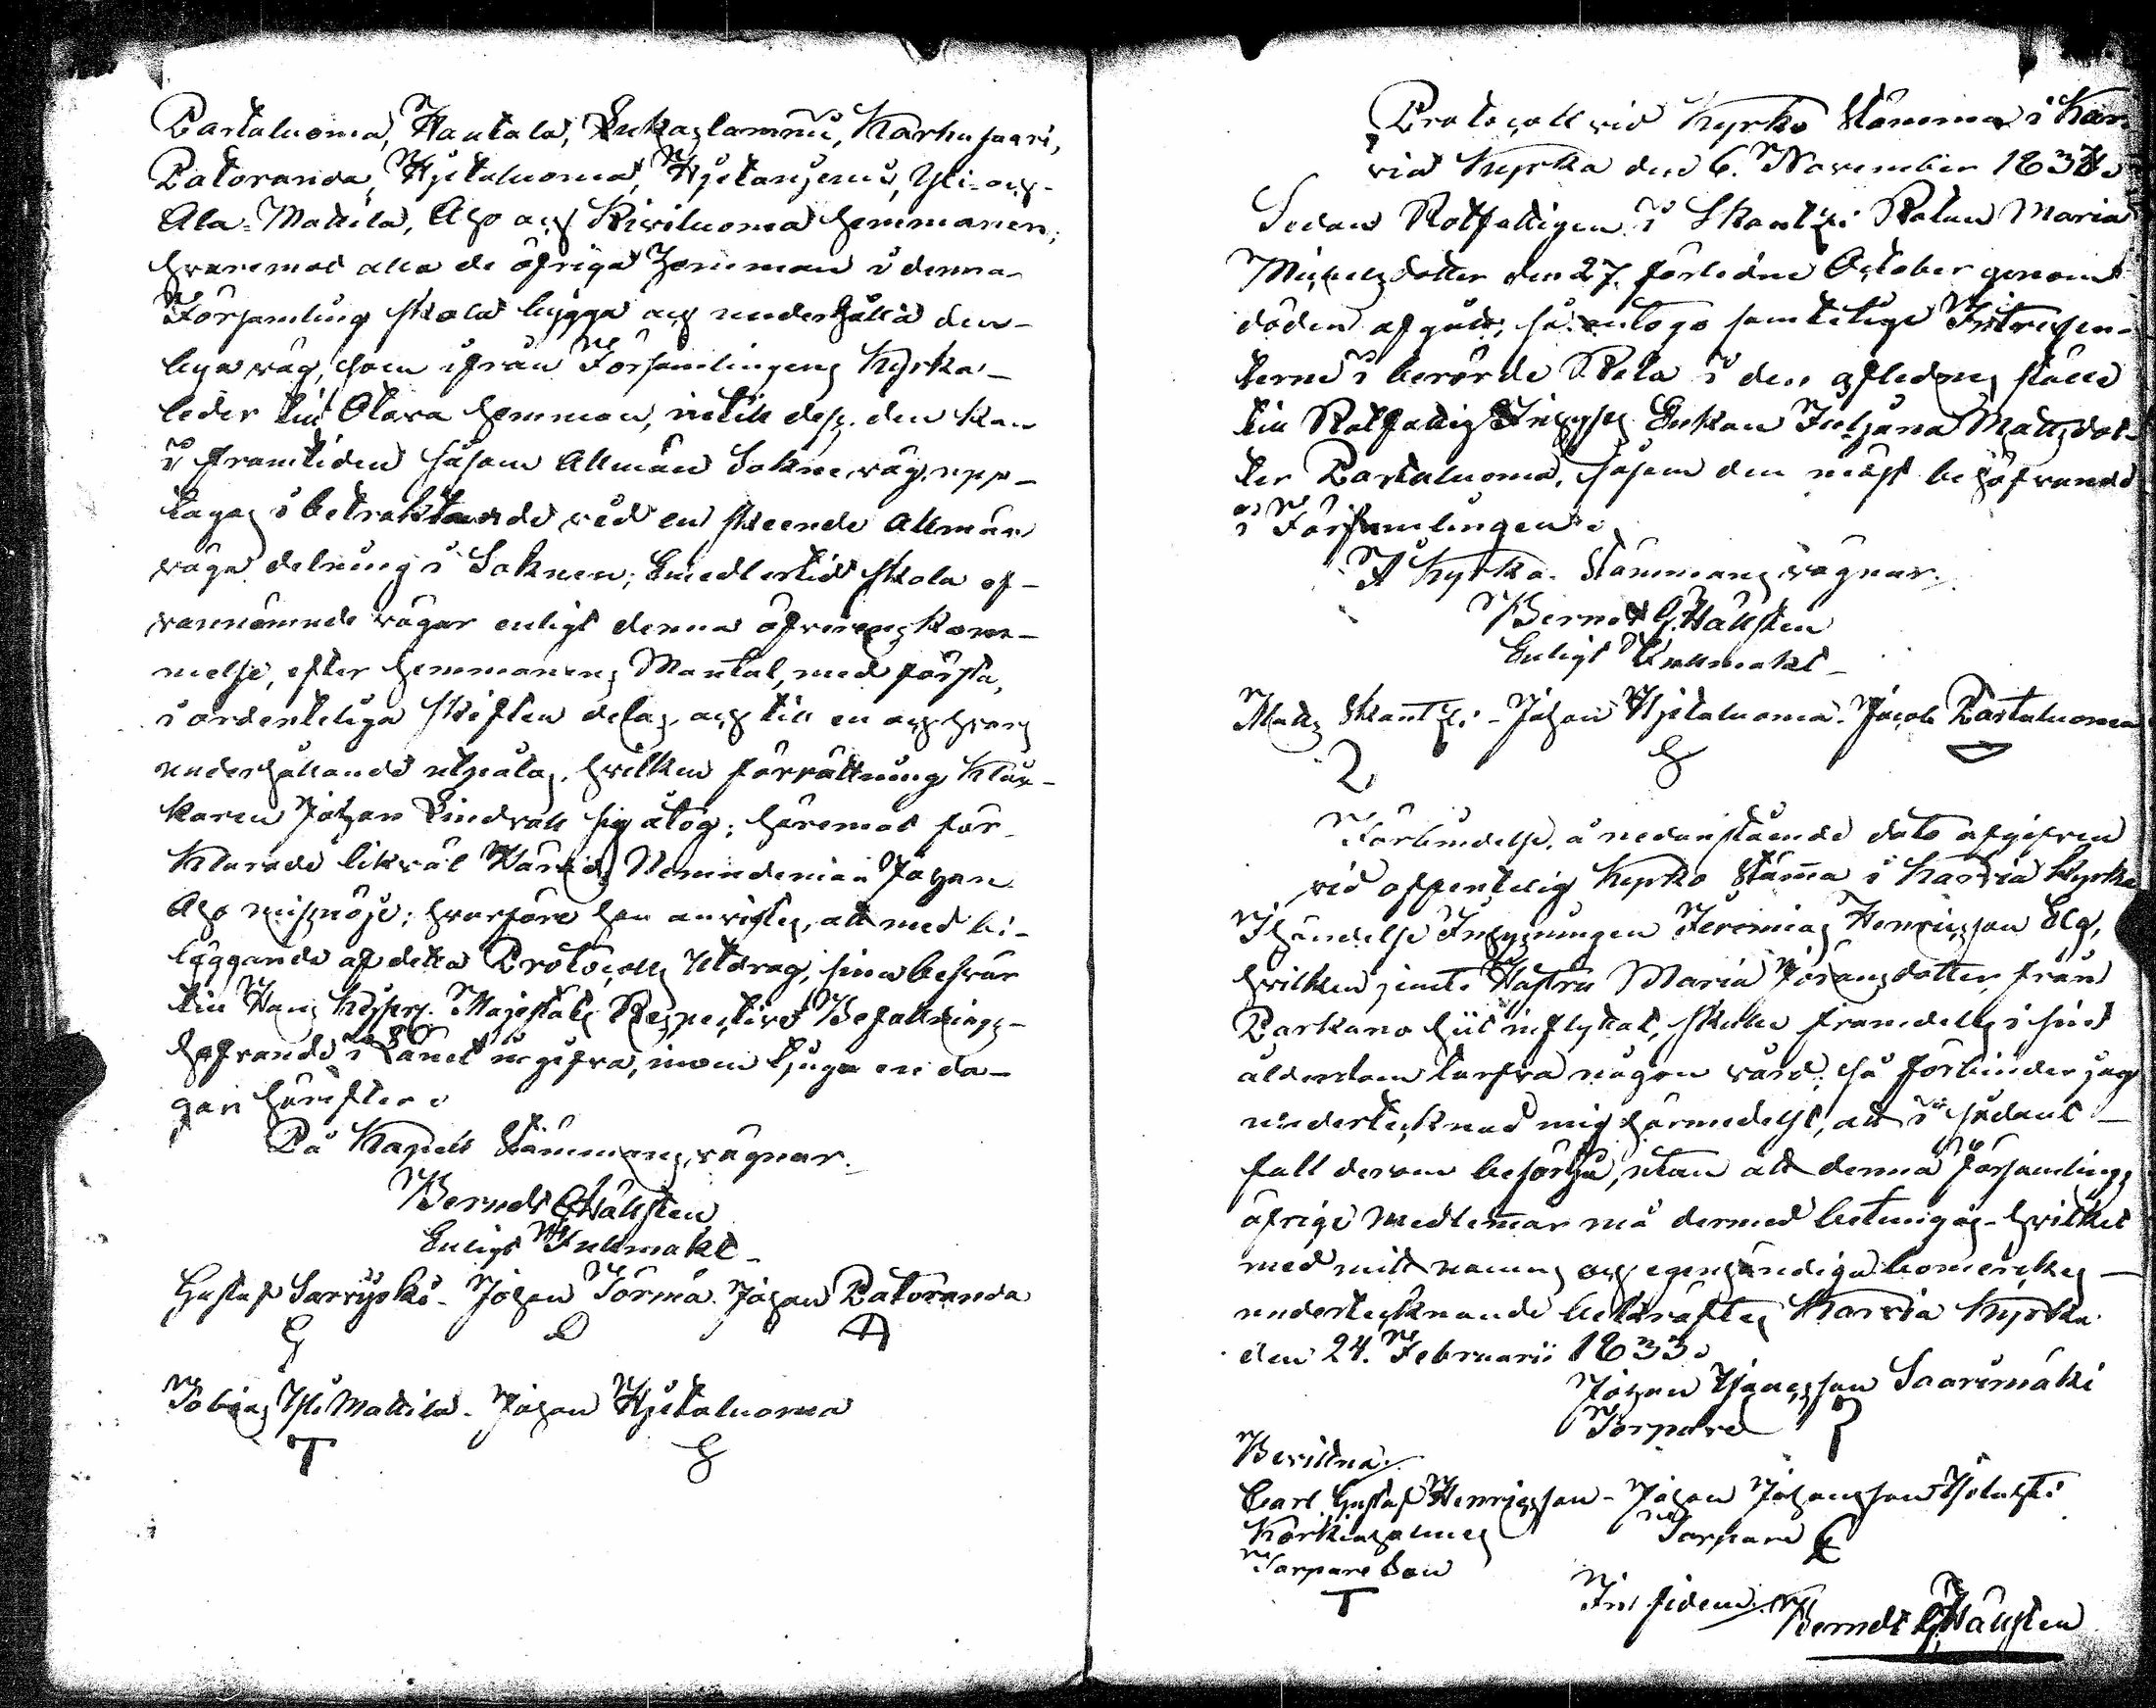 Rastaluoma, Hautala, Lukaslammi, Karhusaari,
Patoranda, Hjetaluoma, Hjetanjemi, Yli- och
Ala-Mattila, Aho och Kiviluoma hemmanen;
hvaremot alla de öfriga Hemman i denna
Församling skola bygga och underhålla den
bya väg, som ifrån Församlingens Kyrka
leder till Otava hemman, intill dess den kan
i framtiden såsom Allmän Sokne väg, upp-
tagas i betraktande vid en skeende Allmän
väga delning i Soknen; Emedlertid skola of-
vannämnde vägar enligt denna öfverenskom-
melse, efter hemmanens Mantal, med första,
i ordenteliga skiften delas, och till en och hvars
underhållande utstakas, hvilken förrättning Kläc-
karen Johan Lindvall sig åtog; häremot för-
klarade likväl Härads Nämndeman Johan
Aho missnöje; hvarföre han anvistes, att med bi-
läggande af detta Protocolls Utdrag, sina besvär
till Hans Kejserl. Majestäts Respective Befallnings-
hafvande i Länet ingifva, inom tjugu en da-
gar härefter.
På Kapell Stämmans vägnar.
Berndt G. Hällsten
Enligt Fullmakt
Gustaf Sarvijoki. Johan Törmä. Johan Patoranda
Tobias Yli Mattila. Johan Hjetaluoma
T
Protocoll vid Kyrko Stämma i Kar-
via Kyrka den 6. November 1832.
Sedan Rotfattigen i Skantzi Rotan Maria
Michelsdotter den 27. förledne October genom
döden afgått; så antogo samtelige Intressen-
terne i berörde Rota i den aflednes ställe
till Rotfattig Inhyses Enkan Juliana Mattsdot-
ter Rastaluoma, såsom den mäst behöfvande
i Församlingen.
På Kyrko Stämmans vägnar.
Berndt G. Hällsten
Enligt Fullmakt
Matts Skantzi - Johan Hjetaluoma. Jacob Rastaluoma
Förbindelse, å nedanstående dato afgifven
vid offentelig Kyrko Stämma i Karvia Kyrka
I händelse Inhysningen Jeremias Henricsson Elg,
hvilken jemte Hustru Maria Göransdotter från
Parkano hit inflyttat, skulle framdeles i sin
ålderdom tarfva någon vård; så förbinder jag
undertecknad mig härmedelst, att i sådant
fall derom besörja, utan att denna Församlings
öfrige Medlemmar må dermed betungas - hvilket
med mitt namns och egenhändiga bomärkes
undertecknande bekräftas Karvia Kyrka
den 24. Februarii 1833.
Johan Hansson Saarimäki
Torpare
Bevittna:
Carl Gustaf Henricsson - Johan Johansson Ylolahti
Torpare
Torpare Son
T
In fidem: Berndt G. Hällsten